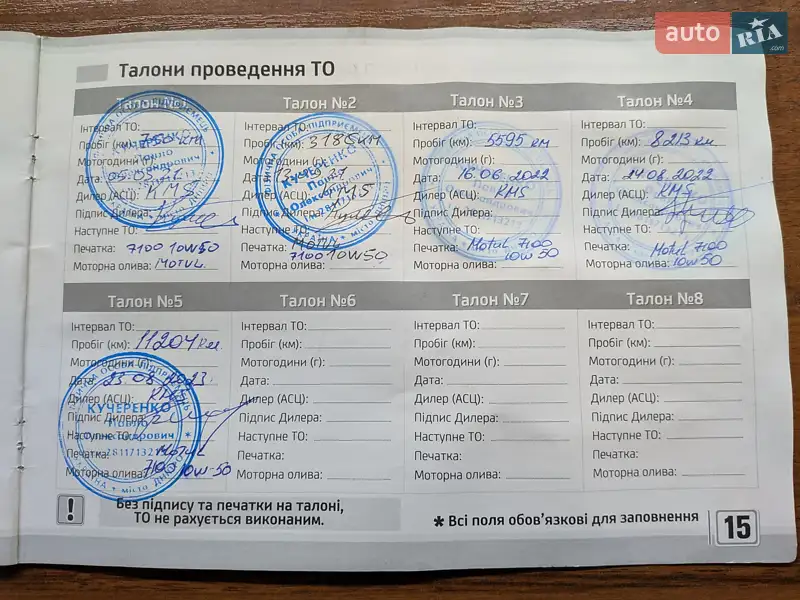 auto RIA.com
Талони проведення ТО
Талон №1
Інтервал ТО:
Пробіг (км): 755 км
Мотогодини (г):
Дата: 05.05.
Дилер (АСЦ): KMS
Підпис Дилера:
Наступне ТО:
Печатка: 7100 10W50
Моторна олива: MOTUL
Талон №2
Інтервал ТО:
Пробіг (км): 3186 км
Мотогодини (г):
Дата:
Дилер (АСЦ): KMS
Підпис Дилера:
Наступне ТО:
Печатка: MOTUL
Моторна олива: 7100 10W50
КУЧЕРЕНКО
Павло
Олександрович
Талон №3
Інтервал ТО:
Пробіг (км): 5595 км
Мотогодини (г):
Дата: 16.06.2022
Дилер (АСЦ): KMS
Підпис Дилера:
Наступне ТО:
Печатка: Motul 7100
Моторна олива: 10W50
Талон №4
Інтервал ТО:
Пробіг (км): 8213 км
Мотогодини (г):
Дата: 24.08.2022
Дилер (АСЦ): KMS
Підпис Дилера:
Наступне ТО:
Печатка: Motul 7100
Моторна олива: 10W50
Талон №5
Інтервал ТО:
Пробіг (км): 11204 км
Мотогодини (г):
Дата: 23.08.2023
Дилер (АСЦ): KMS
Підпис Дилера:
Наступне ТО:
Печатка: MOTUL
Моторна олива: 7100 10W-50
КУЧЕРЕНКО
Павло
Олександрович
Талон №6
Інтервал ТО:
Пробіг (км):
Мотогодини (г):
Дата:
Дилер (АСЦ):
Підпис Дилера:
Наступне ТО:
Печатка:
Моторна олива:
Талон №7
Інтервал ТО:
Пробіг (км):
Мотогодини (г):
Дата:
Дилер (АСЦ):
Підпис Дилера:
Наступне ТО:
Печатка:
Моторна олива:
Талон №8
Інтервал ТО:
Пробіг (км):
Мотогодини (г):
Дата:
Дилер (АСЦ):
Підпис Дилера:
Наступне ТО:
Печатка:
Моторна олива:
! Без підпису та печатки на талоні,
ТО не рахується виконаним.
* Всі поля обов'язкові для заповнення
15